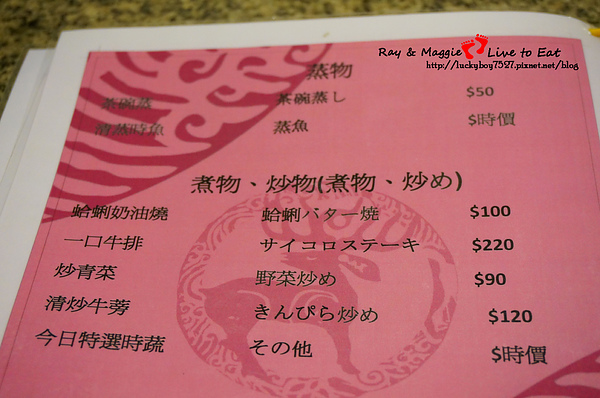 Ray & Maggie Live to Eat
http://luckyboy7527.pixnet.net/blog
蒸物
茶碗蒸 茶碗蒸し $50
清蒸時魚 蒸魚 $時價
煮物、炒物(煮物、炒め)
蛤蜊奶油燒 蛤蜊バター焼 $100
一口牛排 サイコロステーキ $220
炒青菜 野菜炒め $90
清炒牛蒡 きんぴら炒め $120
今日特選時蔬 その他 $時價